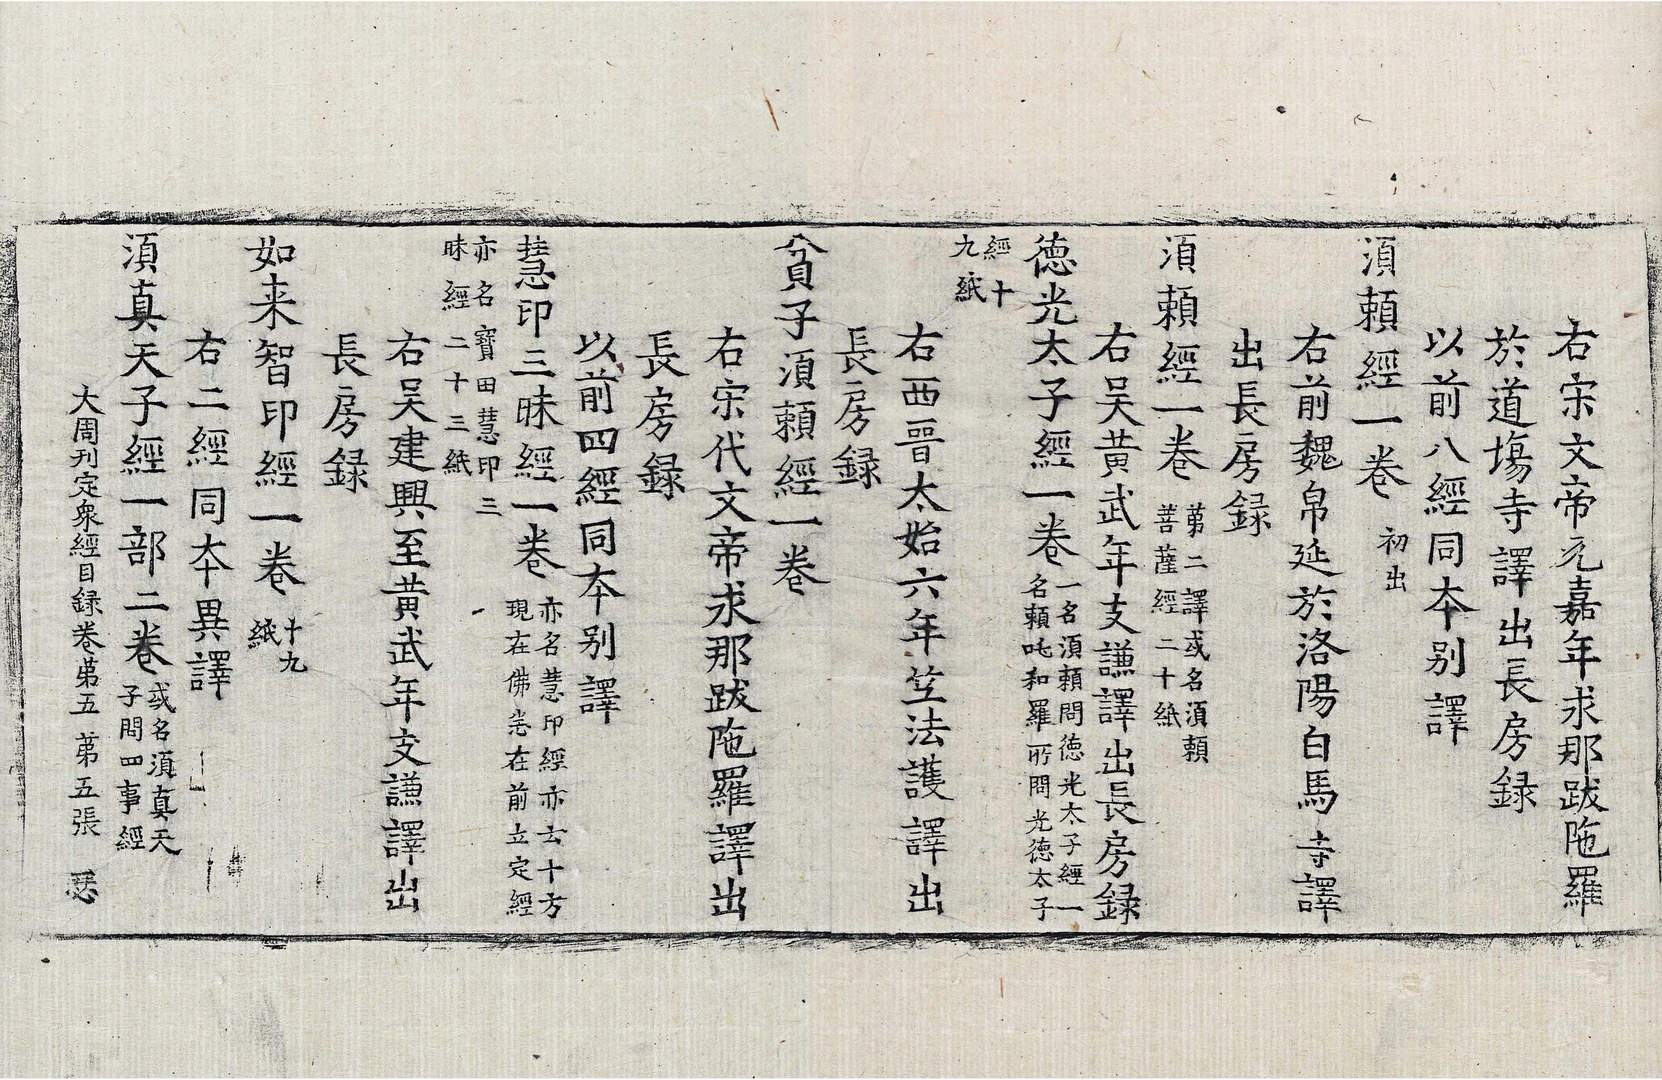 右宋文帝元嘉年求那跋陁羅
於道塲寺譯出長房録
以前八經同夲别譯
須頼經一卷 初出
右前魏帛延於洛陽白馬寺譯
出長房録
須頼經一卷 苐二譯或名須頼菩薩經二十紙
右吴黄武年支謙譯出長房録
德光太子經一卷 一名須頼問德光太子經一名頼吒和羅所問光德太子
經十九紙
右西晉太始六年笁法護譯出
長房録
貧子須頼經一卷
右宋代文帝求那跋陁羅譯出
長房録
以前四經同夲别譯
慧印三昧經一卷 亦名慧印經亦云十方現在佛悉在前立定經
亦名寶田慧印三昧經二十三紙
右吴建興至黄武年支謙譯出
長房録
如来智印經一卷 十九紙
右二經同夲異譯
須真天子經一部二卷 或名須真天子問四事經
大周刊定衆經目録卷苐五 苐五張 瑟